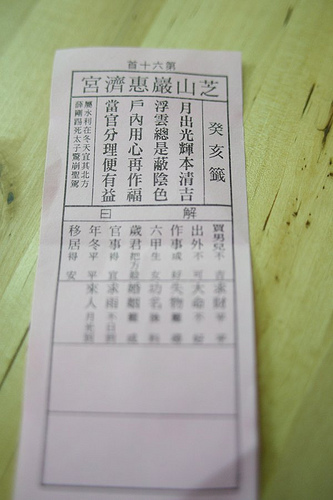 第六十首
芝山巖惠濟宮
癸亥籤
月出光輝本清吉
浮雲總是蔽陰色
戶內用心再作福
當官分理便有益
屬水利在冬天宜其北方
薛剛踢死太子驚崩聖駕
解曰
買男兒 不吉
出外 不可
作事 成好
六甲 生女
歲君
官事 得宜
年冬 平平
移居 得安
求財 平平
大命 不好
失物
功名
婚姻
求雨
來人 月光到